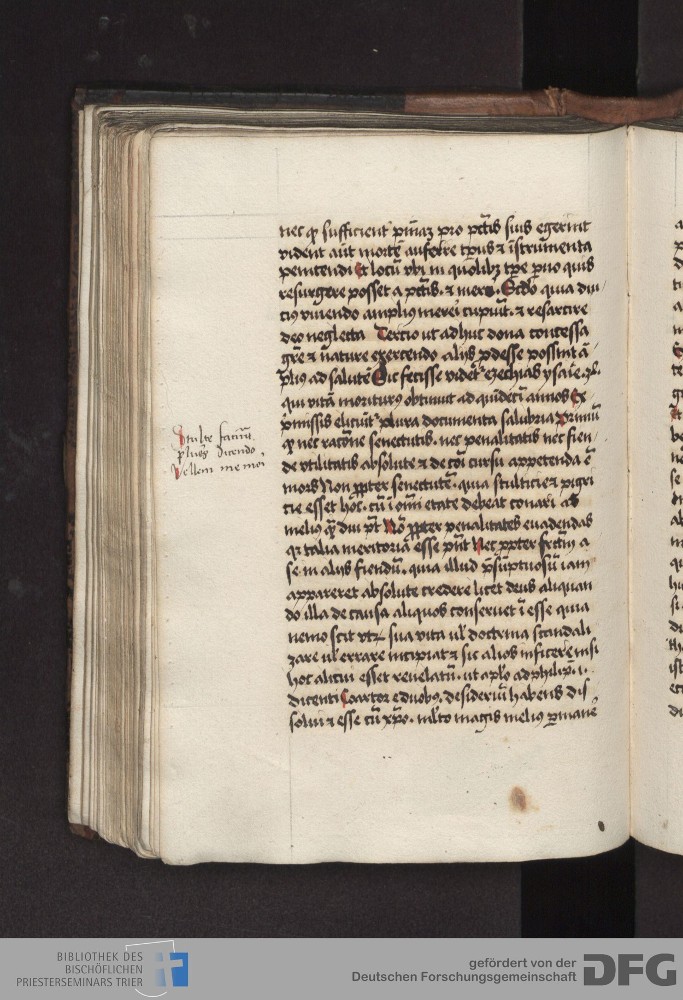 nec q sufficient pniaz pro pctis suis egerint
vident aut morte auferre tpus & instrumenta
penitendi Et locu vbi in quolibz tpe pno quis
resurgere posset a pctis . & mere . Scdo quia diu
cius viuendo amplius mereri cupiut . & resarcire
deo neglecta Tercio ut adhuc dona concessa
gre & nature exercendo alijs pdesse possint a
plius ad salute Sic fecisse videt ezechias ysaie
qui vita moriturus obtinuit ad quideci annos Ex
pmissis eliciut plura documenta salubria Primu
q nec racone senectutis . nec penalitatis nec fien
de vtilitatis absolute & de coi cursu appetenda e
mors Non ppter senectute . quia stulticie & pigri
cie esset hoc . cu i omi etate debeat conari ad
melius q diu pt No ppter penalitates euadendas
qr talia meritoria esse pnt Nec ppter fctm a
se in alijs fiendu . quia illud psuptuosu iam
appareret absolute credere licet deus aliquan
do illa de causa aliquos conseruet i esse quia
nemo scit vtr sua vita ul doctrina scandali
zare ul errare incipiat & sic alios inficere nisi
hoc alicui esset reuelatu . ut aplo ad philip . i .
dicenti Coartor e duobus , desideriu habens dis
solui & esse cu xpo . mlto magis melius pmane
Stulte faciut
plures dicendo
vellem me mori
BIBLIOTHEK DES
BISCHÖFLICHEN
PRIESTERSEMINARS TRIER
gefördert von der
Deutschen Forschungsgemeinschaft DFG